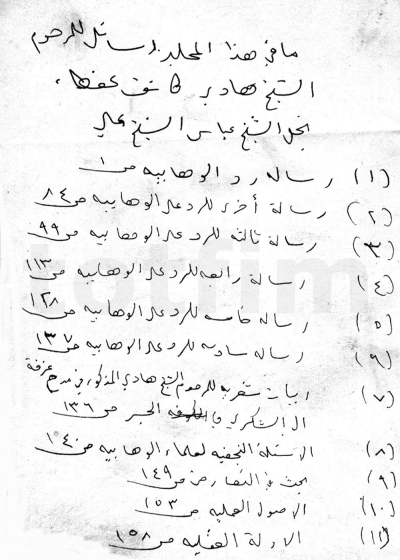 ما في هذا المجلد رسائل للمرحوم
الشيخ هادي كاشف الغطاء
نجل الشيخ عباس الشيخ علي
(١) رساله رد الوهابيه ص ١
(٢) رسالة أخرى للرد على الوهابيه ص ٨٤
(٣) رسالة ثالثه للرد على الوهابيه ص ٩٩
(٤) رسالة رابعه للرد على الوهابيه ص ١١٣
(٥) رساله خامسه للرد على الوهابيه ص ١٢٨
(٦) رساله سادسه للرد على الوهابيه ص ١٣٧
(٧) ابيات شعريه للمرحوم الشيخ هادي المذكور في مدح غرفة
ال الشكري الحبر ص ١٣٦
(٨) الاسئلة النجفيه لعلماء الوهابيه ص ١٤٠
(٩) بحث في التعارض ص ١٤٩
(١٠) الاصول العمليه ص ١٥٣
(١١) الادلة العقليه ص ١٥٨
totfim